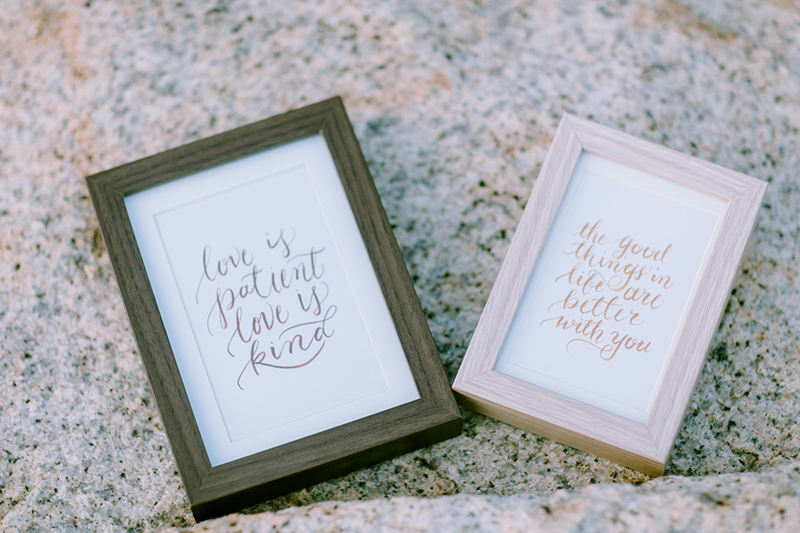 love is
patient
love is
kind
the good
things in
life are
better
with you